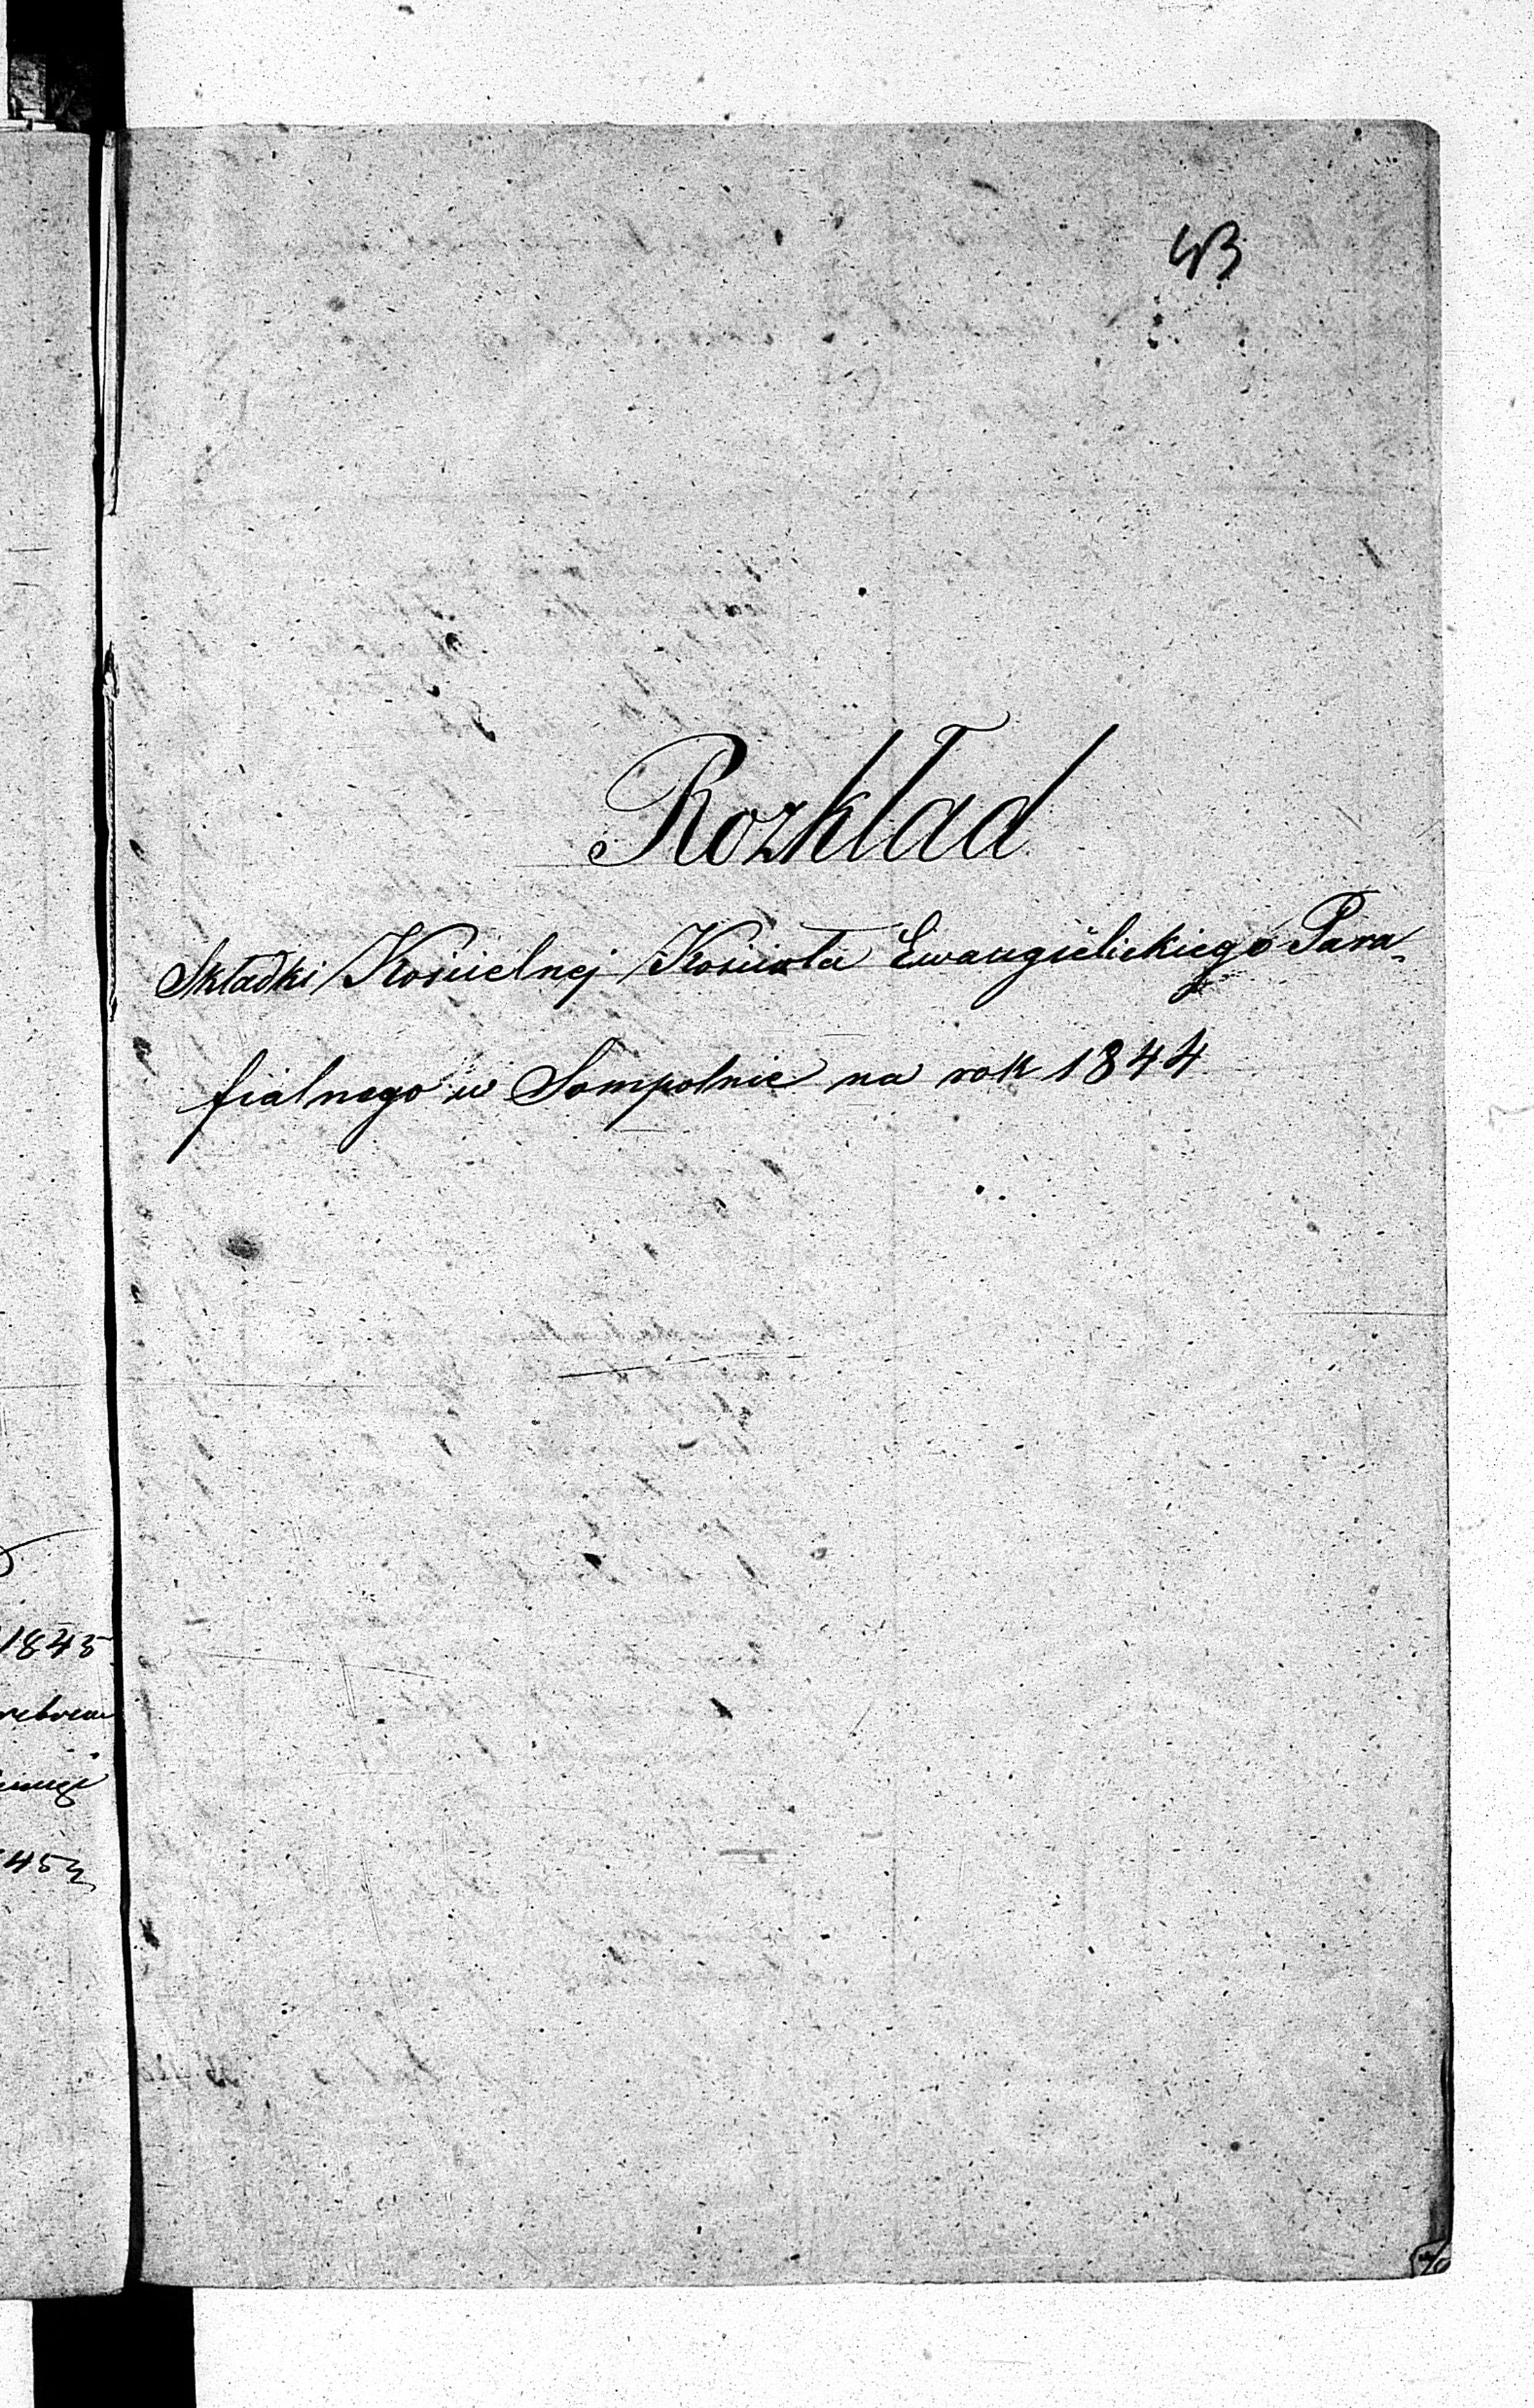 43
Rozkład
Składki Kościelnej Kościoła Ewangielickiego Para
fialnego w Sompolnie na rok 1844
1845